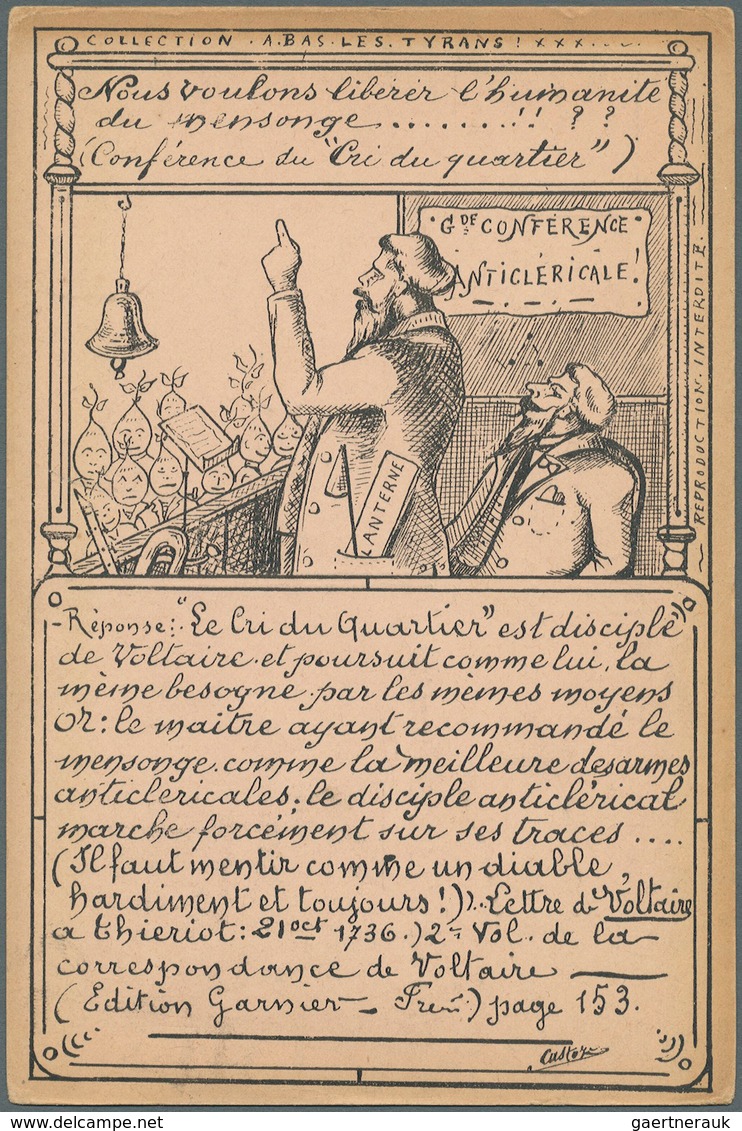 COLLECTION . A. BAS. LES. TYRANS ! xxx.....
Nous voulons libérer l'humanité
du mensonge ....... !! ? ?
(Conférence du "Cri du quartier")
GDE CONFÉRENCE
ANTICLÉRICALE !
REPRODUCTION. INTERDITE.
LANTERNE
- Réponse: "Le Cri du Quartier" est disciple
de Voltaire et poursuit comme lui, la
même besogne par les mêmes moyens
Or: le maitre ayant recommandé le
mensonge comme la meilleure des armes
anticlericales; le disciple anticlérical
marche forcément sur ses traces ....
(Il faut mentir comme un diable,
hardiment et toujours!)). Lettre de Voltaire
a Thieriot: 21 oct 1736.) 2e Vol. de la
correspondance de Voltaire
(Edition Garnier - ) page 153.
gaertnerauk